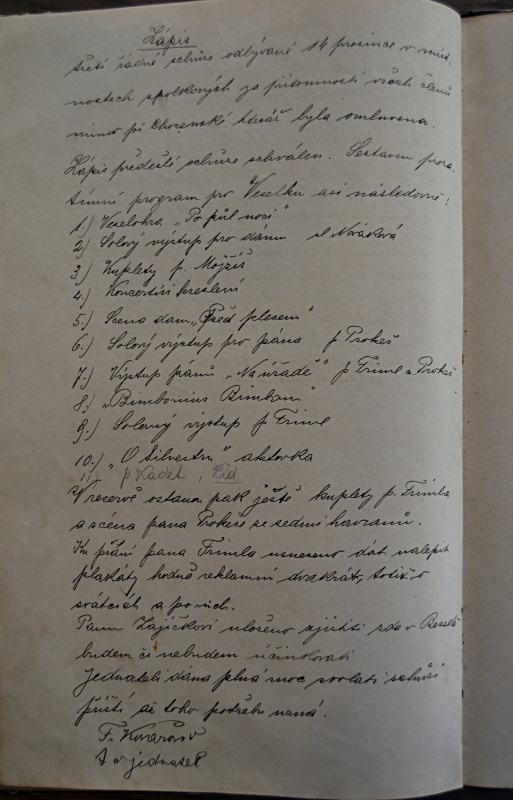 Zápis
třetí řádné schůze odbývané 14 prosince v míst-
nostech spolkových za přítomnosti všech členů
mimo pí Chocenské kteráž byla omluvena.
Zápis předešlé schůze schválen. Sestaven prozа-
tímní program pro Veselku asi následovně:
1.) Veselohra "Po půl noci"
2) Solový výstup pro dámu sl Nováková
3.) Kuplety p. Mojžíš
4.) Koncertní kreslení
5.) Scena dam. "Před plesem"
6.) Solový výstup pro pána p Prokeš
7.) Výstup pánů "Na úřadě" p. Triml a Prokeš
8.) "Bimbonius Bimbam"
9.) Solový výstup p Triml
10.) "O Silvestru" aktovka
11) p Kadet, Žid
V reservě ostanou pak ještě kuplety p. Trimla
a scéna pana Prokeše se sedmi havranů.
Ku přání pana Trimla usneseno dát nalepit
plakáty hodně reklamní dvakrát, totiž o
svátcích a po nich.
Panu Zajíčkovi uloženo zjistiti zda v Besedě
budem či nebudem účinkovati
Jednateli dána plná moc svolati schůzi
příští až toho potřebu uzná.
F.
t č jednatel